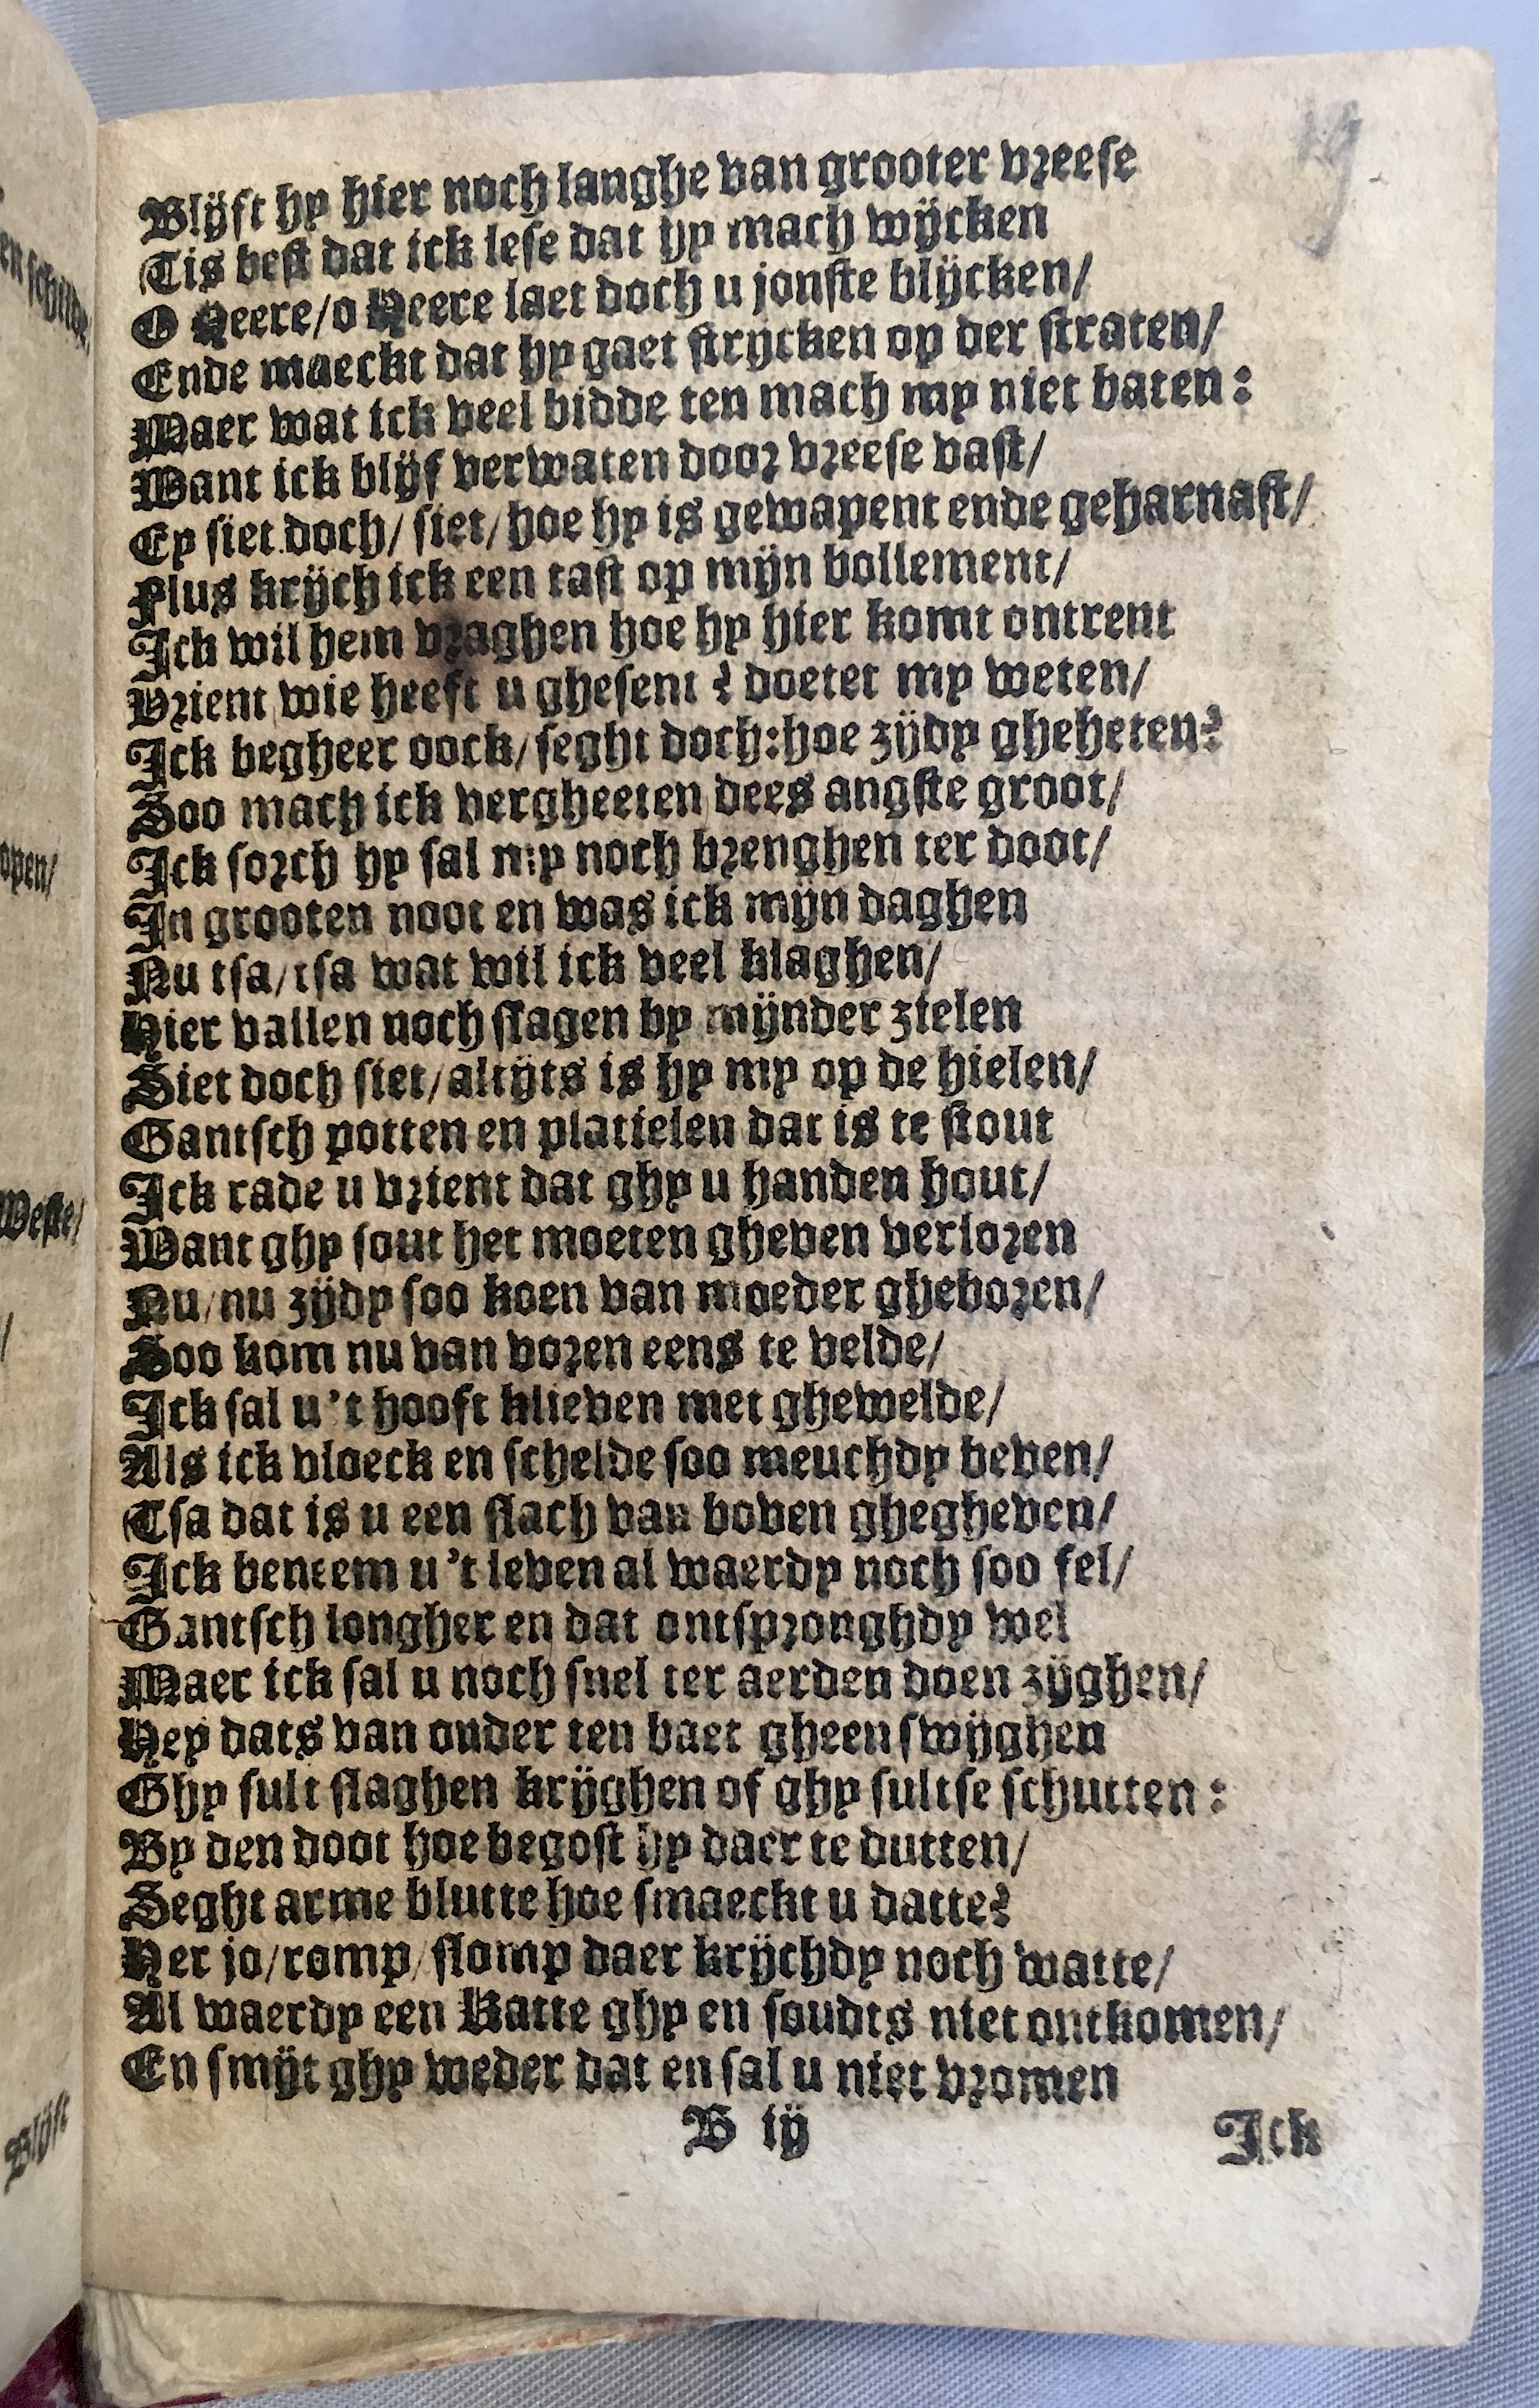 19
Blijft hy hier noch langhe van grooter vreese
Tis best dat ick lese dat hy mach wijcken
O Heere/o Heere laet doch u jonste blijcken/
Ende maeckt dat hy gaet strijcken op der straten/
Maer wat ick veel bidde ten mach my niet baten:
Want ick blijf verwaten door vreese vast/
Ey siet doch/ siet/ hoe hy is gewapent ende geharnast/
Flus krijch ick een tast op mijn bollement/
Ick wil hem vraghen hoe hy hier komt ontrent
Vrient wie heeft u ghesent? doetet my weten/
Ick begheer oock/ seght doch: hoe zijdy gheheten?
Soo mach ick vergheeten dees angste groot/
Ick sorch hy sal my noch brenghen ter doot/
In grooten noot en was ick mijn daghen
Nu tsa/tsa wat wil ick veel klaghen/
Hier vallen noch slagen by mijnder zielen
Siet doch siet/ altijts is hy my op de hielen/
Gantsch potten en platielen dat is te stout
Ick rade u vrient dat ghy u handen hout/
Want ghy sout het moeten gheven verloren
Nu/nu zijdy soo koen van moeder gheboren/
Soo kom nu van voren eens te velde/
Ick sal u 't hooft klieven met ghewelde/
Als ick vloeck en schelde soo meuchdy beven/
Tsa dat is u een slach van boven ghegheven/
Ick beneem u 't leven al waerdy noch soo fel/
Gantsch longher en dat ontspronghdy wel
Maer ick sal u noch snel ter aerden doen zijghen/
Hey dats van onder ten baet gheen swijghen
Ghy sult slaghen krijghen of ghy sultse schutten:
By den doot hoe begost hy daer te dutten/
Seght arme blutte hoe smaeckt u datte?
Her jo/romp/ slomp daer krijchdy noch watte/
Al waerdy een Katte ghy en soudts niet ontkomen/
En smijt ghy weder dat en sal u niet vromen
B iij
Ick
en schilde/
open/
Weste/
/
Blijft